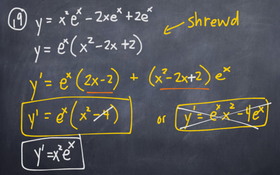 19) y = x²eˣ - 2xeˣ + 2eˣ
shrewd
y = eˣ(x² - 2x + 2)
y' = eˣ(2x-2) + (x²-2x+2)eˣ
y' = eˣ(x² - 4) or y' = eˣx² - 4eˣ
y' = x²eˣ